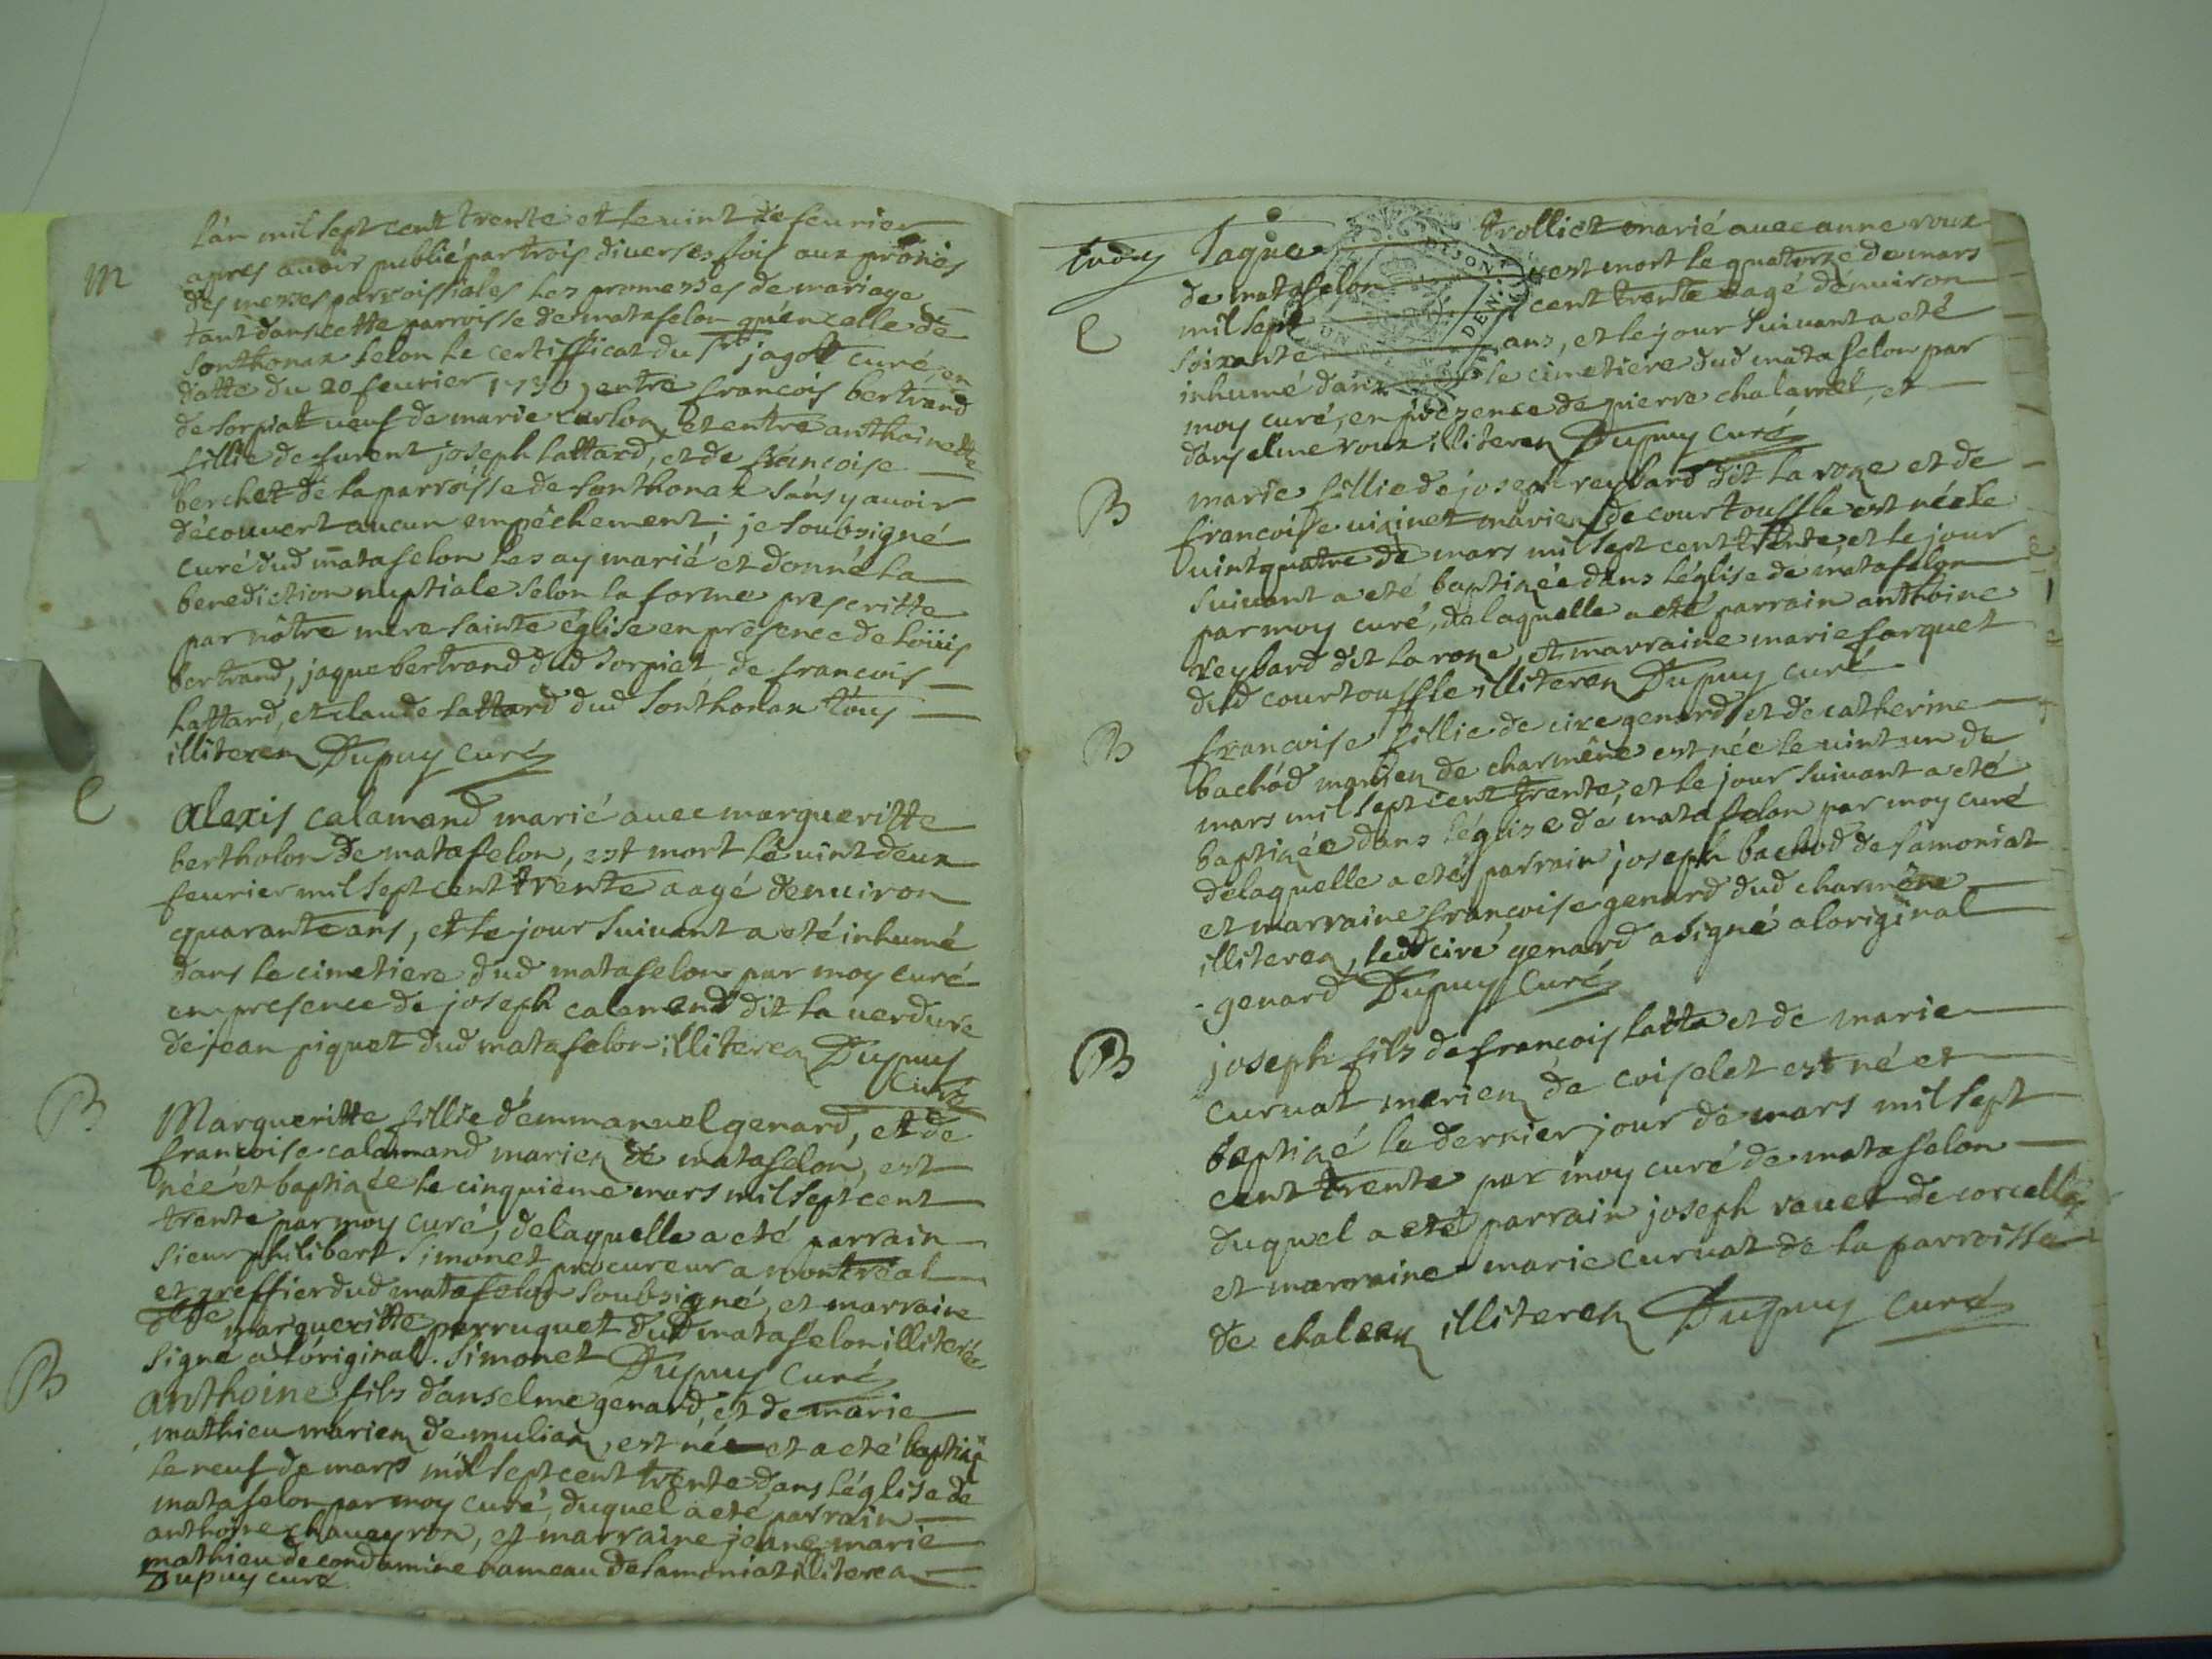 M
lán mil sept cent trente et le vint de feurier
apres auoir publié par trois diuerses fois aux prônes
des messes parroissiales les promesses de mariage
tant dans cette parroisse de matafelon qu'en celle de
Sonthonax selon le certifficat du Sr jagot curé, en
datte du 20 feurier 1730, entre francois bertrand
de sorpiat ueuf de marie carlon et entre anthoinette
fillie de furent joseph lattard, et de francoise
berchet de la parroisse de Sonthonax sans y auoir
découvert aucun empêchement; je soubsigné
curé dud matafelon les ay marié et donné la
benediction nuptiale selon la forme prescritte
par nôtre mere sainte église en présence de loüis
bertrand, jaque bertrand dud sorpiat, de francois
lattard, et claude lattard dud Sonthonax tous
illiterez Dupuy curé
C
Alexis calamand marié auec margueritte
bertholon de matafelon, est mort le vint deux
feurier mil sept cent trente aagé denuiron
quarante ans, et le jour suiuant a eté inhumé
dans le cimetiere dud matafelon par moy curé
en presence de joseph calamend dit la uerdure
de jean piquet dud matafelon illiterez Dupuy
curé
B
Margueritte fillie d'emmanuel genard, et de
francoise calamand mariez de matafelon, est
née et baptizée le cinquieme mars mil sept cent
trente par moy curé, de laquelle a eté parrain
sieur philibert Simonet procureur a montreal
et greffier dud matafelon soubsigné, et marraine
margueritte perruquet dud matafelon illiterée
signé a l'óriginal. Simonet Dupuy curé
B
anthoine fils d'anselme genard, et de marie
mathieu mariez de muliaz, est né et a eté baptizé
le neuf de mars mil sept cent trente dans l'église de
matafelon par moy curé, duquel a eté parrain
anthoine chaueyron, et marraine jeane marie
mathieu de condamine hameau de samoniat illiterez
Dupuy curé
Jaque trollict marié auec anne roux
de matafelon est mort le quatorze de mars
C
mil sept cent trente aagé dénuiron
soixante ans, et le jour suiuant a eté
inhumé dans le cimetiere dud matafelon par
moy curé, en présence de pierre chalamel, et
d'anselme roux illiterez Dupuy curé
B
marie fillie de joseph reybard dit la roze et de
francoise uixinet mariez de courtouffle est née le
vint quatre de mars mil sept cent trente, et le jour
suiuant a eté baptizée dans l'église de matafelon
par moy curé, de laquelle a eté parrain anthoine
reybard dit la roze, et marraine marie farquet
dud courtouffle illiterez Dupuy curé
B
francoise fillie de cire genard et de catherine
bachód mariez de charmêne est née le vint un de
mars mil sept cent trente, et le jour suiuant a eté
baptizée dans l'église de matafelon par moy curé
de laquelle a eté parrain joseph bachod de samoniat
et marraine francoise genard dud charmêne
illiterez, led ciré genard a signé a loriginal
genard Dupuy Curé
B
joseph fils de francois latta et de marie
curuat mariez de coiselet est né et
baptizé le dernier jour de mars mil sept
cent trente par moy curé de matafelon
duquel a eté parrain joseph rauet de corcelle
et marraine marie curuat de la parroisse
de chaleaz illiterez Dupuy curé